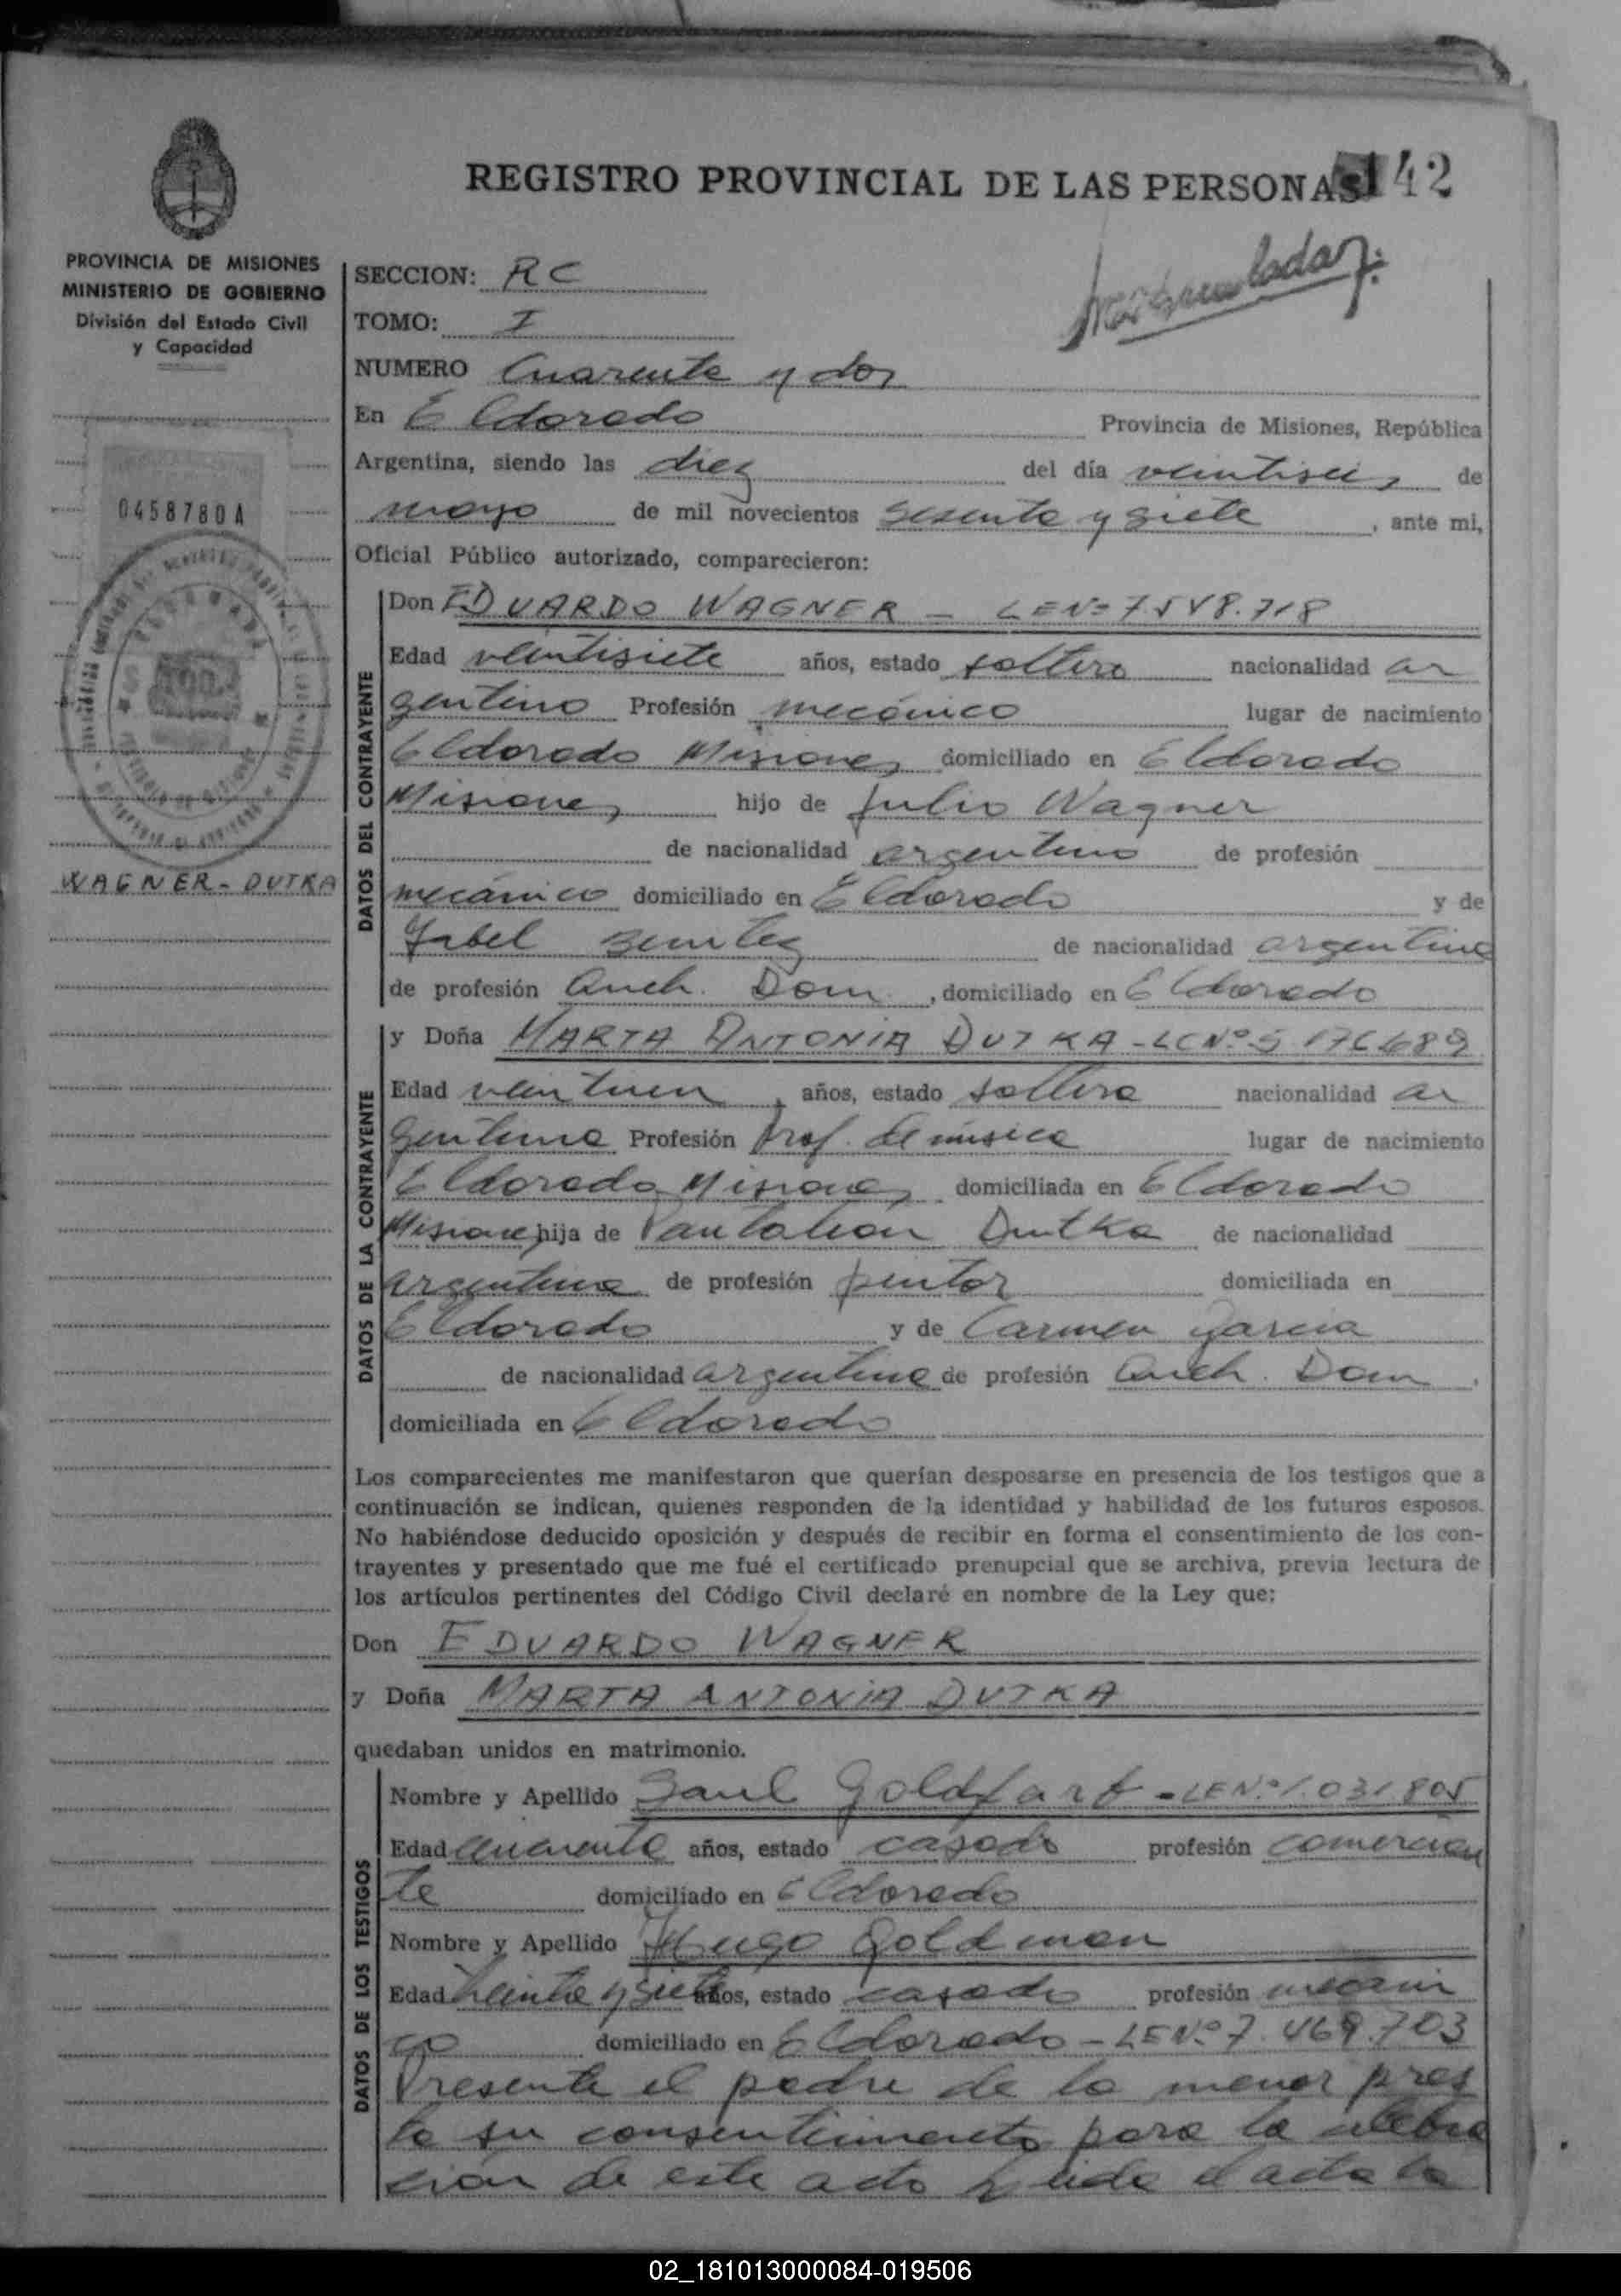 REGISTRO PROVINCIAL DE LAS PERSONAS 142
PROVINCIA DE MISIONES
MINISTERIO DE GOBIERNO
División del Estado Civil
y Capacidad
0458780A
WAGNER - DUTKA
SECCION: RC
TOMO: I
NUMERO Cuarenta y dos
En Eldorado Provincia de Misiones, República
Argentina, siendo las diez del día veintiseis de
mayo de mil novecientos sesenta y siete, ante mi,
Oficial Público autorizado, comparecieron:
DATOS DEL CONTRAYENTE
Don EDUARDO WAGNER - LE Nº 7.548.718
Edad veintisiete años, estado soltero nacionalidad ar
gentino Profesión mecánico lugar de nacimiento
Eldorado Misiones domiciliado en Eldorado
Misiones hijo de Julio Wagner
de nacionalidad argentino de profesión
mecánico domiciliado en Eldorado y de
Isabel Benitez de nacionalidad argentina
de profesión Queh. Dom, domiciliado en Eldorado
DATOS DE LA CONTRAYENTE
y Doña MARTA ANTONIA DUTKA - LC Nº 5 176689
Edad años, estado soltera nacionalidad ar
gentina Profesión Prof. de música lugar de nacimiento
Eldorado Misiones domiciliada en Eldorado
Misiones hija de Pantaleon Dutka de nacionalidad
argentina de profesión pintor domiciliada en
Eldorado y de Carmen Garcia
de nacionalidad argentina de profesión Queh. Dom,
domiciliada en Eldorado
Los comparecientes me manifestaron que querían desposarse en presencia de los testigos que a
continuación se indican, quienes responden de la identidad y habilidad de los futuros esposos.
No habiéndose deducido oposición y después de recibir en forma el consentimiento de los con-
trayentes y presentado que me fué el certificado prenupcial que se archiva, previa lectura de
los artículos pertinentes del Código Civil declaré en nombre de la Ley que:
Don EDUARDO WAGNER
y Doña MARTA ANTONIA DUTKA
quedaban unidos en matrimonio.
DATOS DE LOS TESTIGOS
Nombre y Apellido Saul Goldfarb - LE Nº 1.031805
Edad cuarenta años, estado casado profesión comercian
te domiciliado en Eldorado
Nombre y Apellido Hugo Goldman
Edad treinta y siete años, estado casado profesión mecani
co domiciliado en Eldorado - LE Nº 7.469.703
Presente el padre de la menor pres
ta su consentimiento para la celebra
ción de este acto leida el acta la
02_181013000084-019506